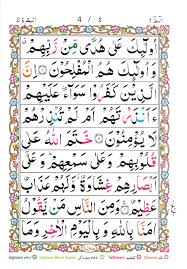 الٓمّٓ ١ 4 / ٤ البقرة ٢
اُولٰٓئِكَ عَلٰى هُدًى مِّنْ رَّبِّهِمْ
وَاُولٰٓئِكَ هُمُ الْمُفْلِحُوْنَ ۝ اِنَّ
الَّذِيْنَ كَفَرُوْا سَوَآءٌ عَلَيْهِمْ
ءَاَنْذَرْتَهُمْ اَمْ لَمْ تُنْذِرْهُمْ
لَا يُؤْمِنُوْنَ ۝ خَتَمَ اللّٰهُ عَلٰى
قُلُوْبِهِمْ وَعَلٰى سَمْعِهِمْ وَعَلٰٓى
اَبْصَارِهِمْ غِشَاوَةٌ وَّلَهُمْ عَذَابٌ
عَظِيْمٌ ۝ وَمِنَ النَّاسِ مَنْ يَّقُوْلُ
اٰمَنَّا بِاللّٰهِ وَبِالْيَوْمِ الْاٰخِرِ وَمَا